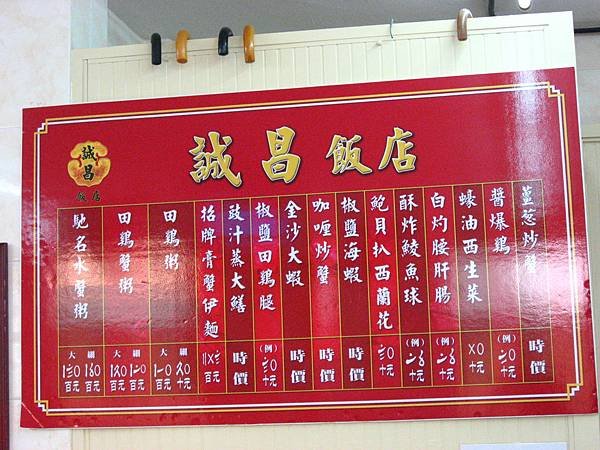 誠昌飯店
誠昌
飯店
薑葱炒蟹
時價
醬爆鷄
(例)
十元
蠔油西生菜
十元
白灼腰肝腸
(例)
十元
酥炸鯪魚球
(例)
十元
鮑貝扒西蘭花
十元
椒鹽海蝦
時價
咖喱炒蟹
時價
金沙大蝦
時價
椒鹽田鷄腿
(例)
十元
豉汁蒸大鱔
時價
招牌膏蟹伊麵
百元
田鷄粥
大 細
百元 十元
田鷄蟹粥
大 細
百元 百元
馳名水蟹粥
大 細
百元 百元